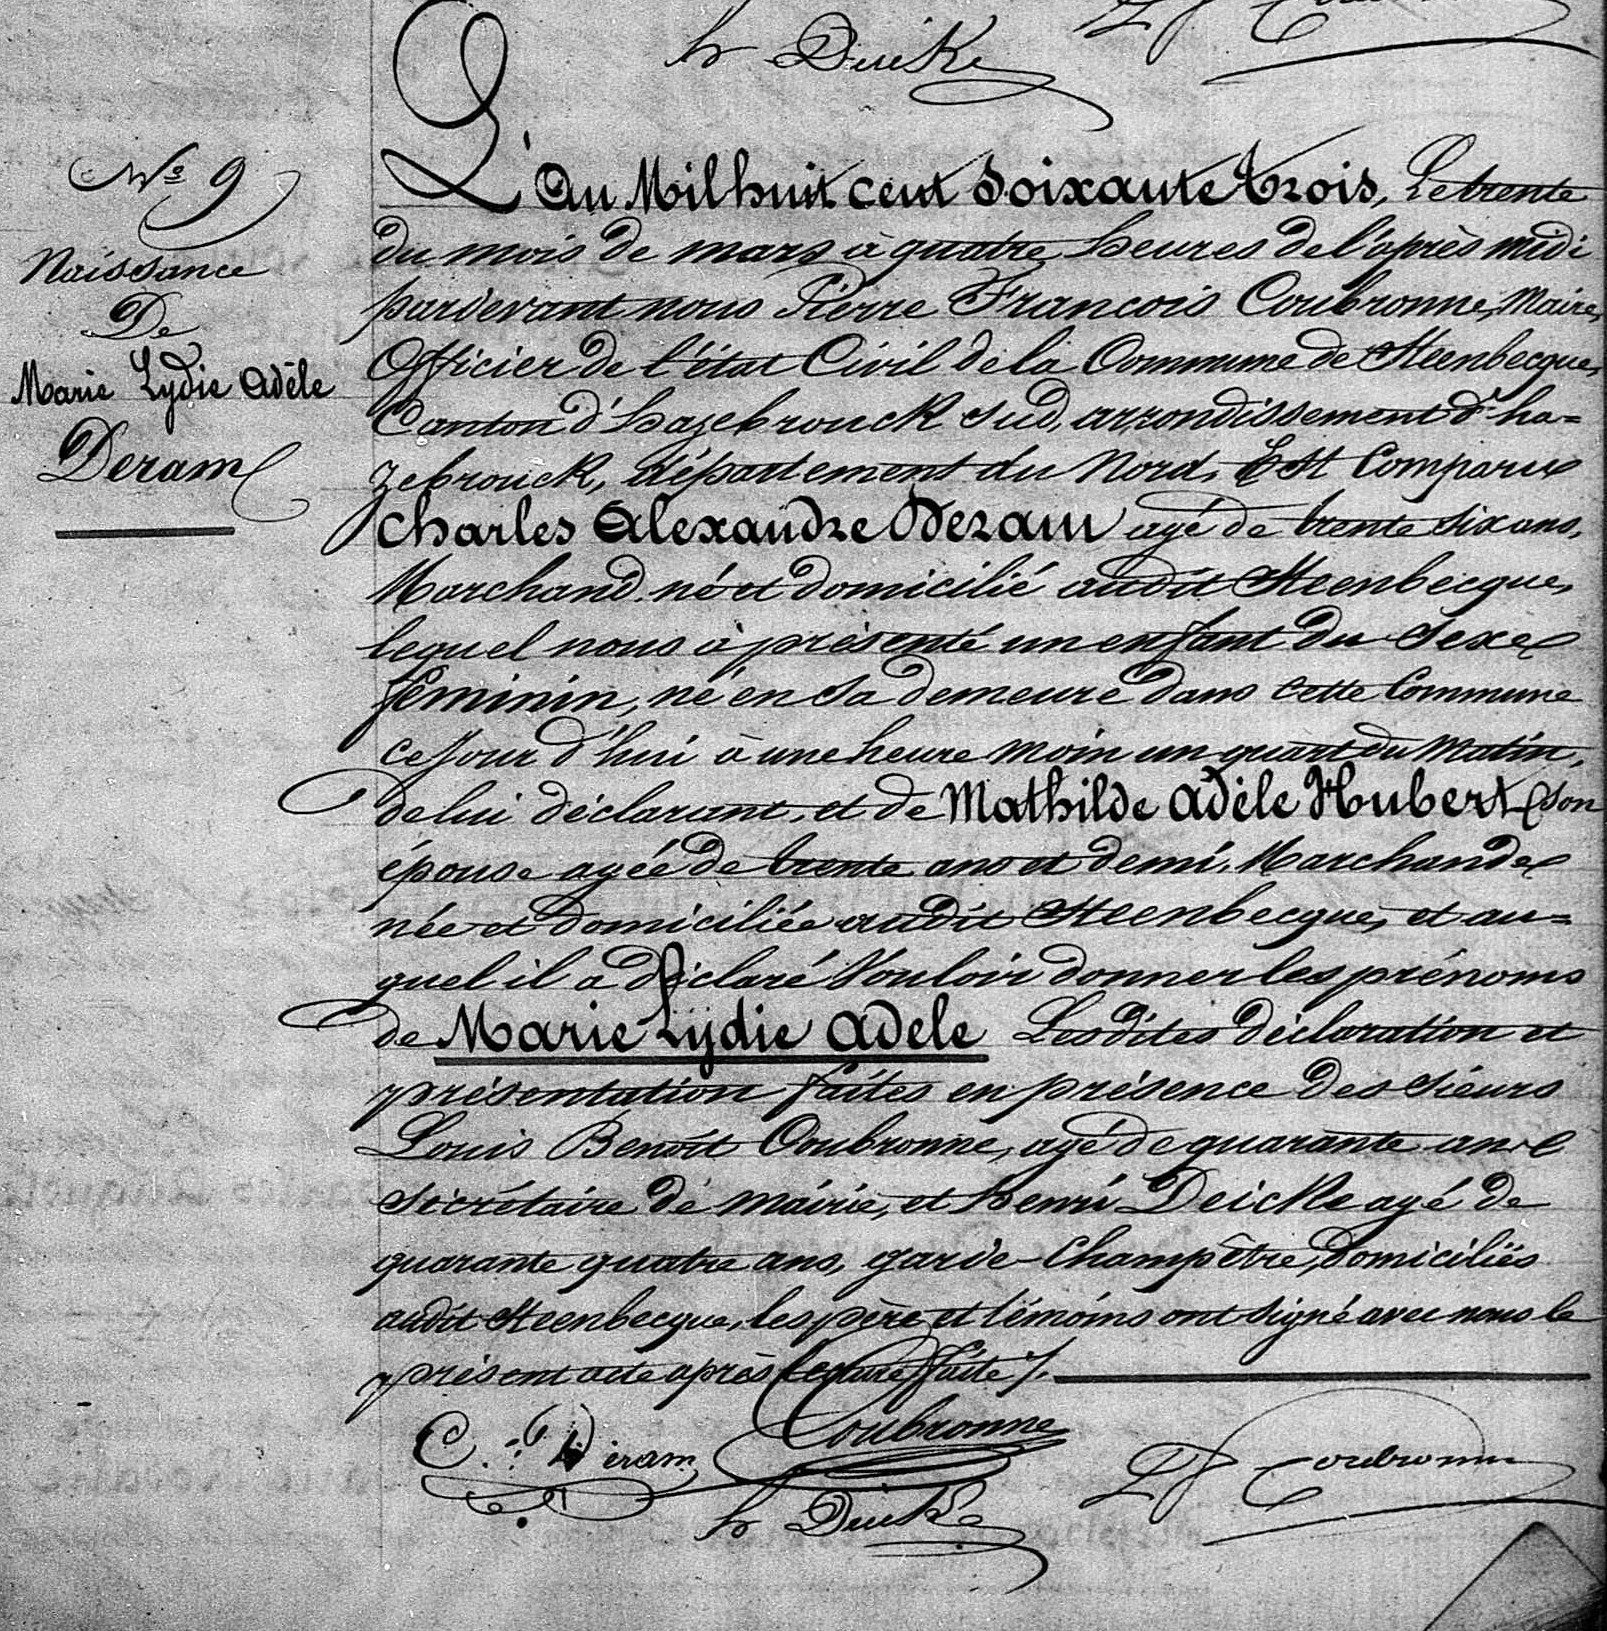 h Deicke
Nº 9
Naissance
De
Marie Lydie Adèle
Deram
L'an Mil huit cent Soixante trois, Le trente
du mois de mars à quatre heures de l'après midi
pardevant nous Pierre François Coubronne, Maire,
Officier de l'état Civil de la Commune de Steenbecque,
Canton d'hazebrouck sud, arrondissement d'ha=
zebrouck, département du Nord, Est Comparu
Charles Alexandre Deram agé de trente six ans,
Marchand né et domicilié audit Steenbecque,
lequel nous à présenté un enfant du sexe
féminin, né en sa demeure dans cette Commune
ce jour d'hui à une heure moin un quart du matin,
de lui déclarant, et de Mathilde Adèle Hubert son
épouse agée de trente ans et demi, Marchande
née et domiciliée audit Steenbecque, et au=
quel il a déclaré Vouloir donner les prénoms
de Marie Lydie Adele Lesdites déclaration et
présentation faites en présence des sieurs
Louis Benoit Coubronne, agé de quarante ans
Sécrétaire de mairie, et henri Deicke agé de
quarante quatre ans, garde-Champêtre, domiciliés
audit Steenbecque, les père et témoins ont signé avec nous le
présent acte après lecture faite /.
C. Deram Coubronne
L J Coubronne
h Deicke